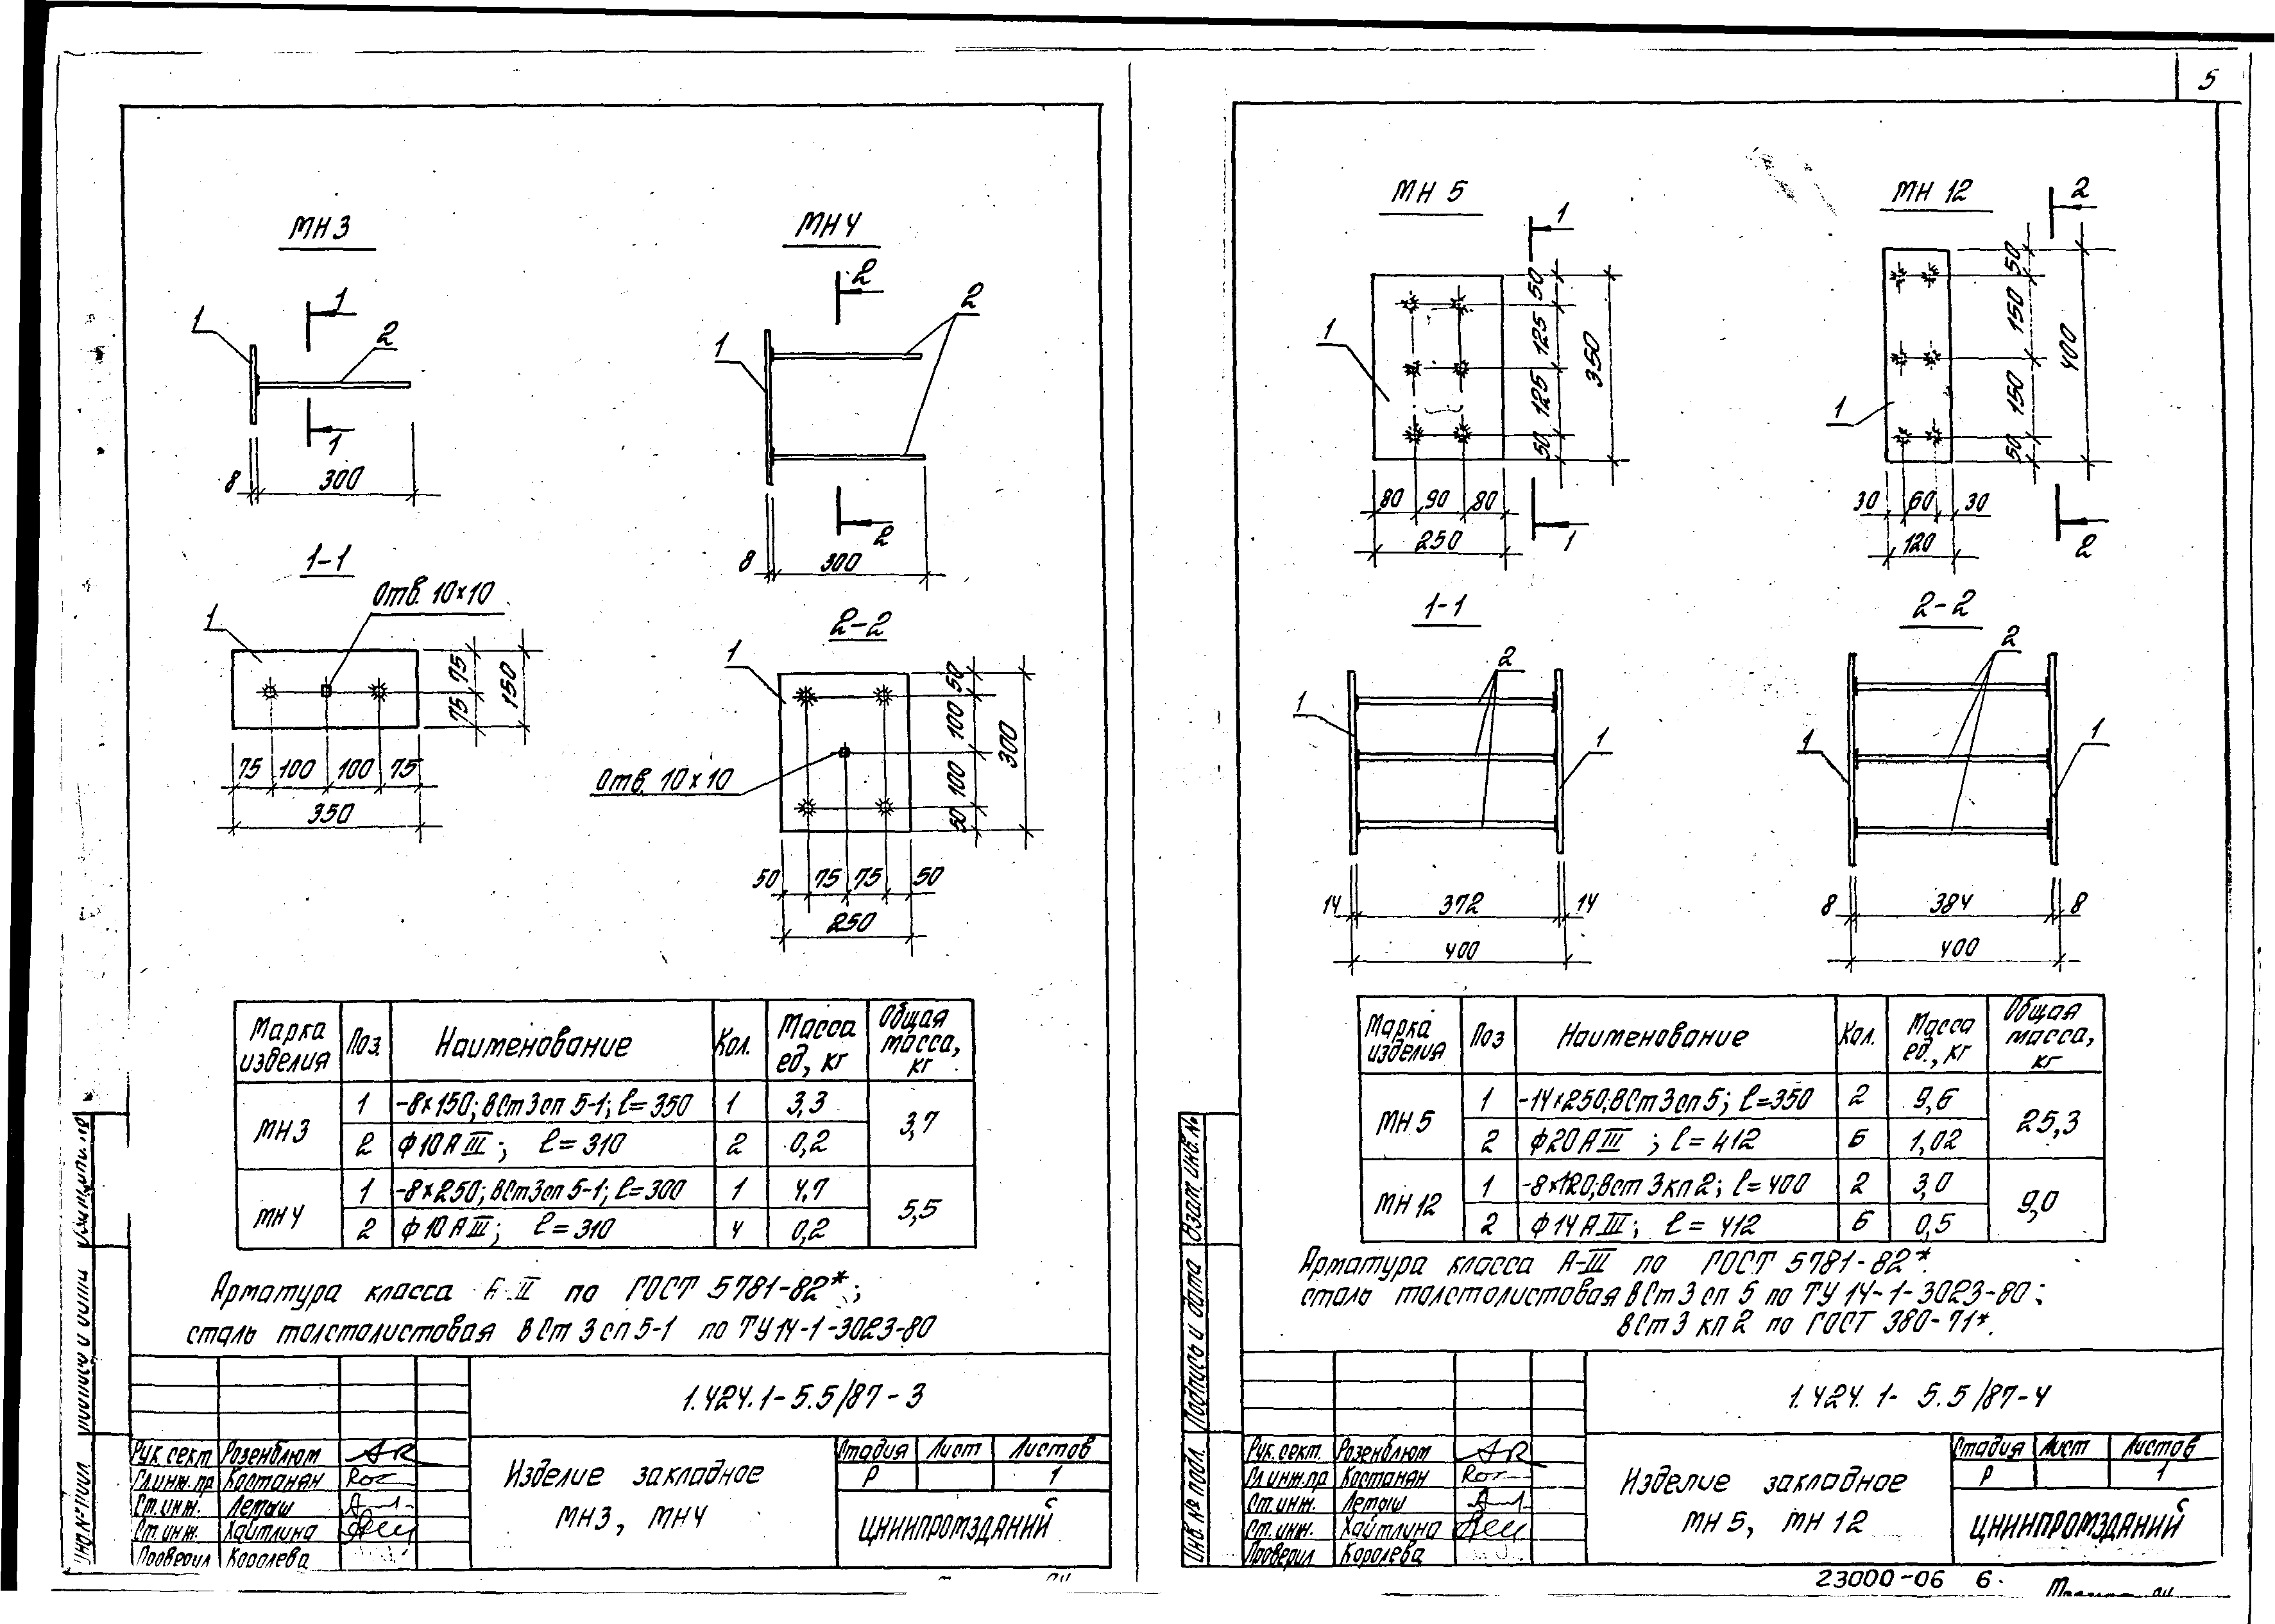 5
МН3
1
1
2
1
8
300
1-1
Отв. 10×10
1
75
75
150
75
100
100
75
350
МН4
2
2
1
2
8
300
2-2
1
Отв. 10×10
50
100
100
50
300
50
75
75
50
250
Марка изделия
Поз.
Наименование
Кол.
Масса ед., кг
Общая масса, кг
МН3
1
-8×150; ВСт3сп5-1; ℓ=350
1
3,3
3,7
2
ф10АIII; ℓ=310
2
0,2
МН4
1
-8×250; ВСт3сп5-1; ℓ=300
1
4,7
5,5
2
ф10АIII; ℓ=310
4
0,2
Арматура класса по ГОСТ 5781-82*;
сталь толстолистовая ВСт3сп5-1 по ТУ14-1-3023-80
1.424.1-5.5/87-3
Рук. сект. Розенблюм
Гл.инж.пр Костанян
Ст.инж. Летыш
Ст.инж. Хайтлина
Проверил Королева
Изделие закладное
МН3, МН4
Стадия Лист Листов
Р 1
ЦНИИПРОМЗДАНИЙ
МН 5
1
1
50
125
125
50
350
80
90
80
250
1
1-1
2
1
1
14
372
14
400
МН 12
2
50
150
150
50
400
1
30
60
30
120
2
2-2
2
1
1
8
384
8
400
Марка изделия
Поз
Наименование
Кол.
Масса ед., кг
Общая масса, кг
МН 5
1
-14×250, ВСт3сп5; ℓ=350
2
9,6
25,3
2
ф20АIII; ℓ=412
6
1,02
МН 12
1
-8×120, Вст3кп2; ℓ=400
2
3,0
9,0
2
ф14АIII; ℓ=412
6
0,5
Арматура класса А-III по ГОСТ 5781-82*.
сталь толстолистовая ВСт3сп5 по ТУ14-1-3023-80;
ВСт3кп2 по ГОСТ 380-71*.
1.424.1-5.5/87-4
Рук. сект. Розенблюм
Гл.инж.пр Костанян
Ст.инж. Летыш
Ст.инж. Хайтлина
Проверил Королева
Изделие закладное
МН 5, МН 12
Стадия Лист Листов
Р 1
ЦНИИПРОМЗДАНИЙ
Инв.№ подл.
Подпись и дата
Взам.инв.№
23000-06 6